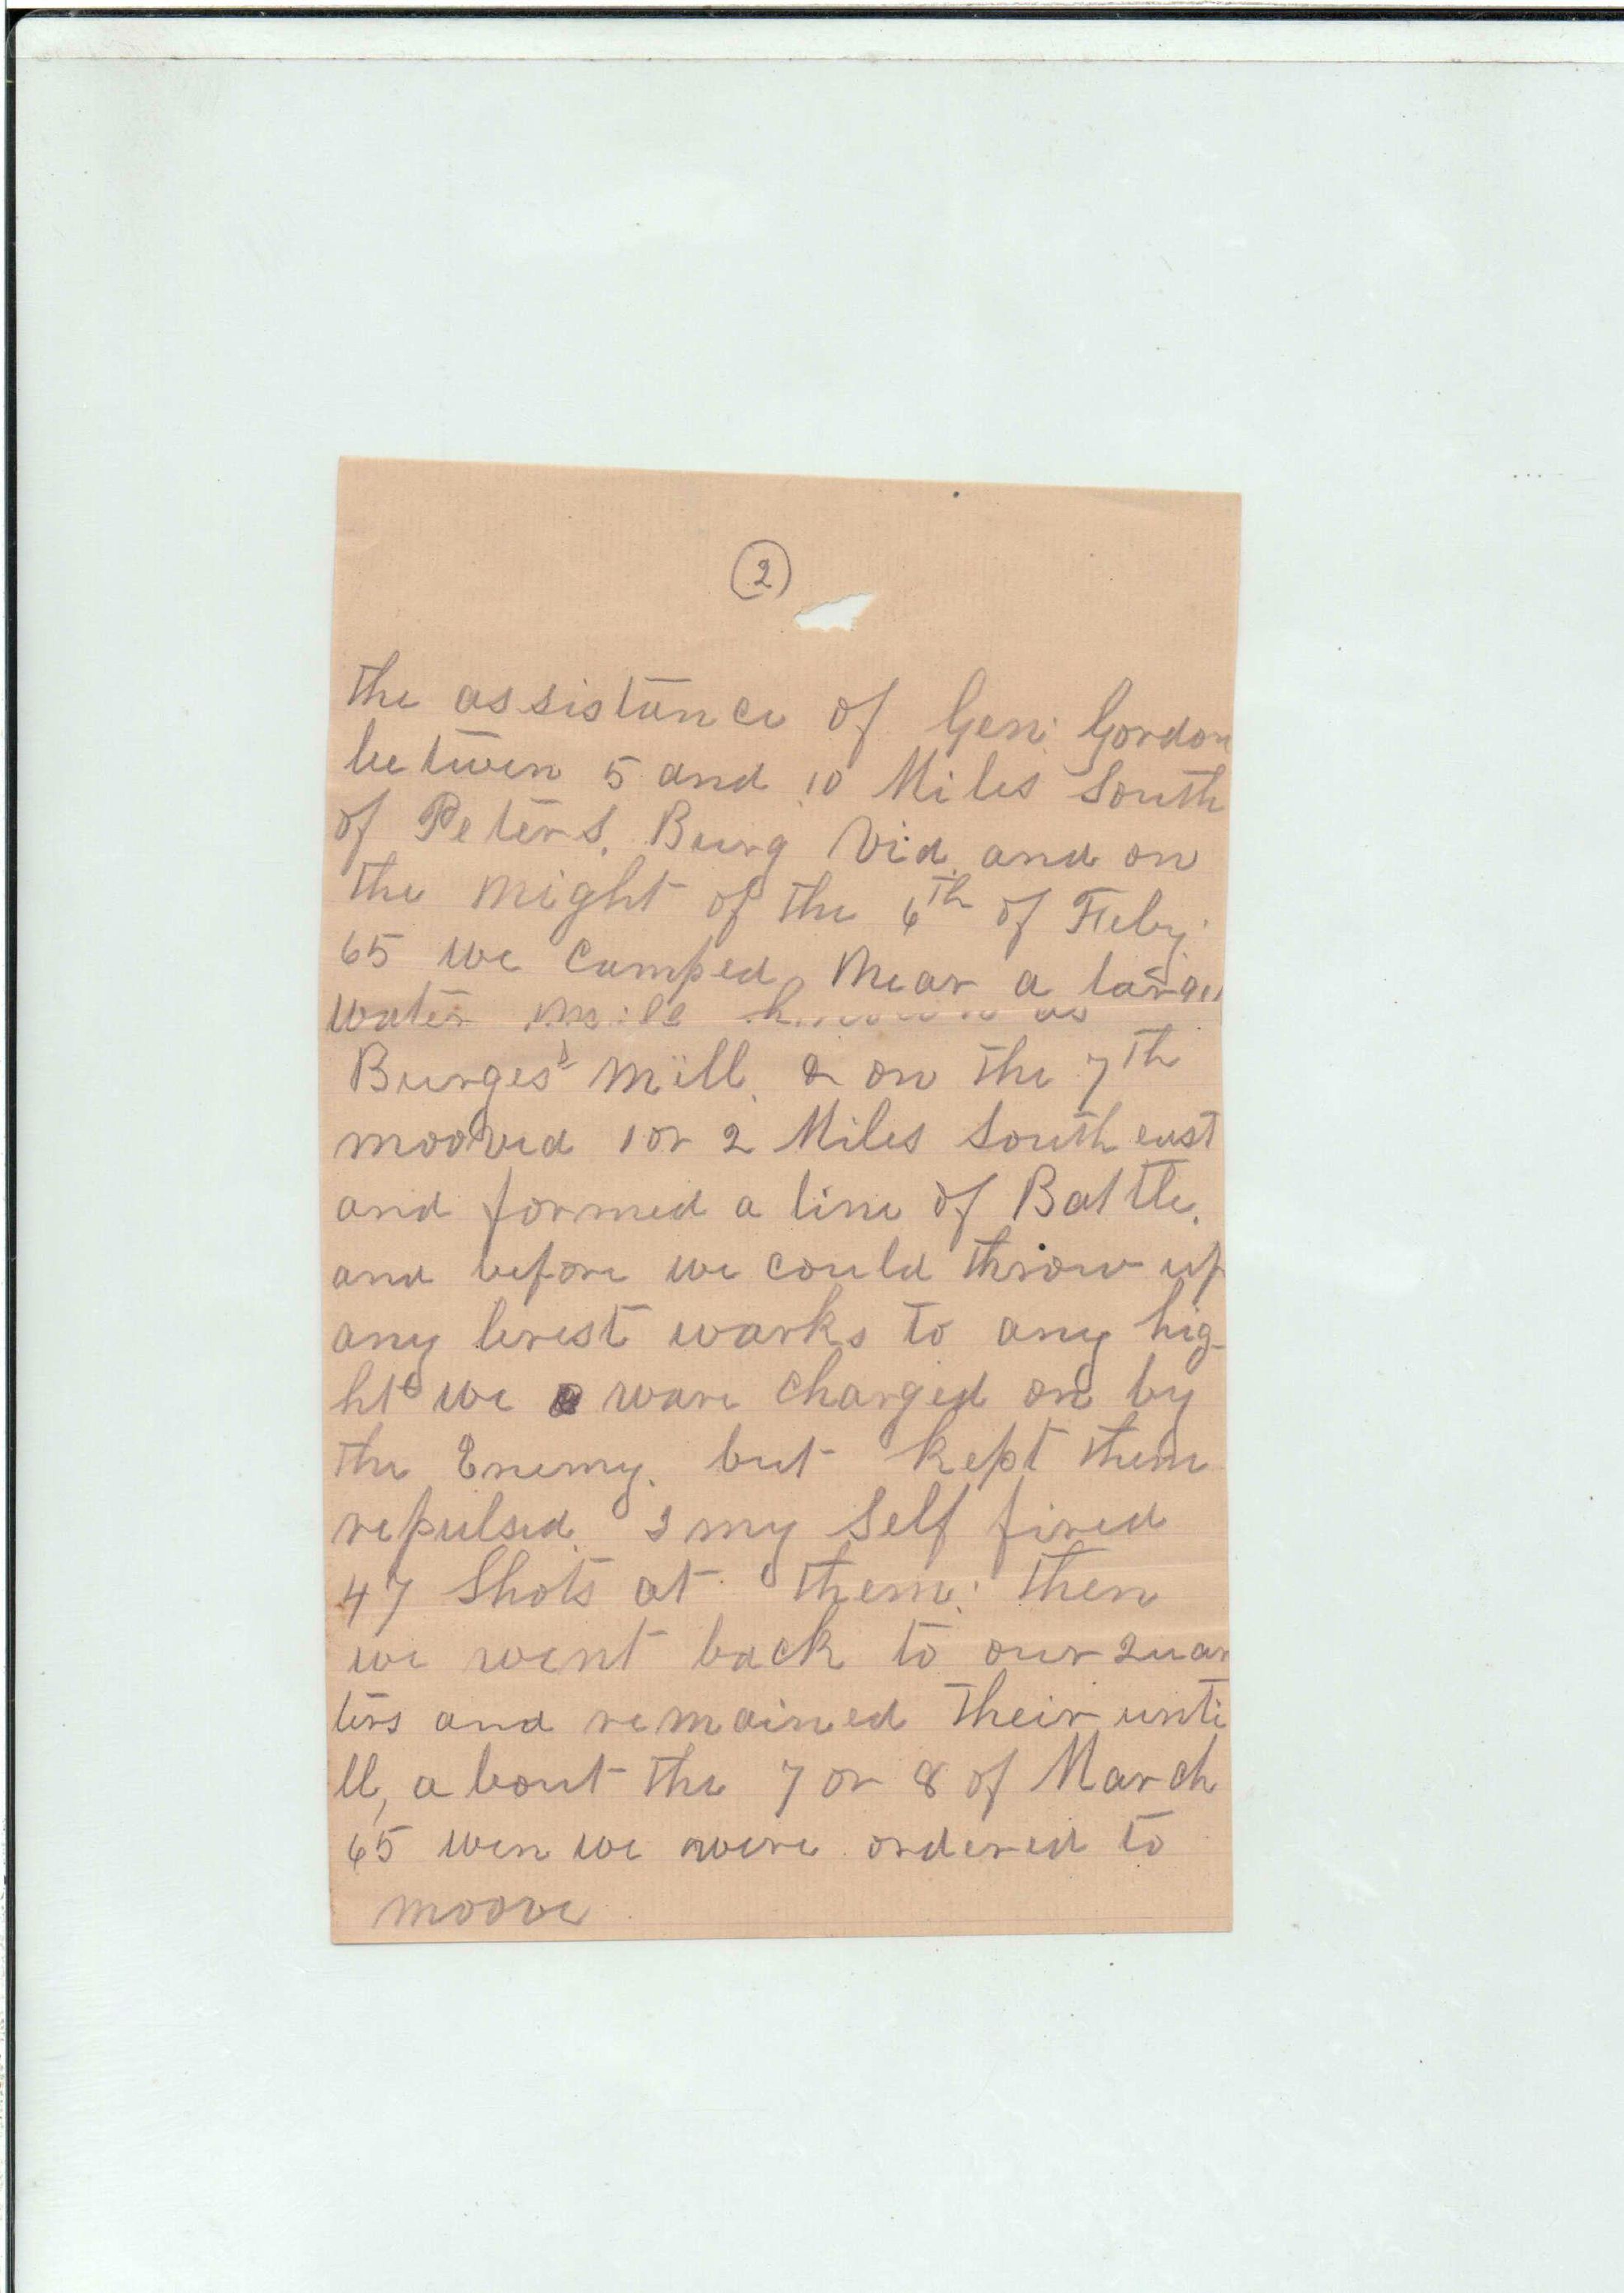 2
the assistance of Gen: Gordon
be twen 5 and 10 Miles South
of Peters. Burg Via. and on
the Night of the 6th of Feby.
65 we Camped Near a large
water
Burges's Mill. & on the 7th
mooved 1 or 2 Miles South east
and formed a line of Battle.
and before we could throw up
any brest warks to any hig-
ht we ware Charged on by
the Enemy. but kept them
repulsed. I my Self fired
47 Shots at them: then
we went back to our Quar
ters and remained their unti
ll, a bout the 7 or 8 of March
65 wen we were ordered to
moove